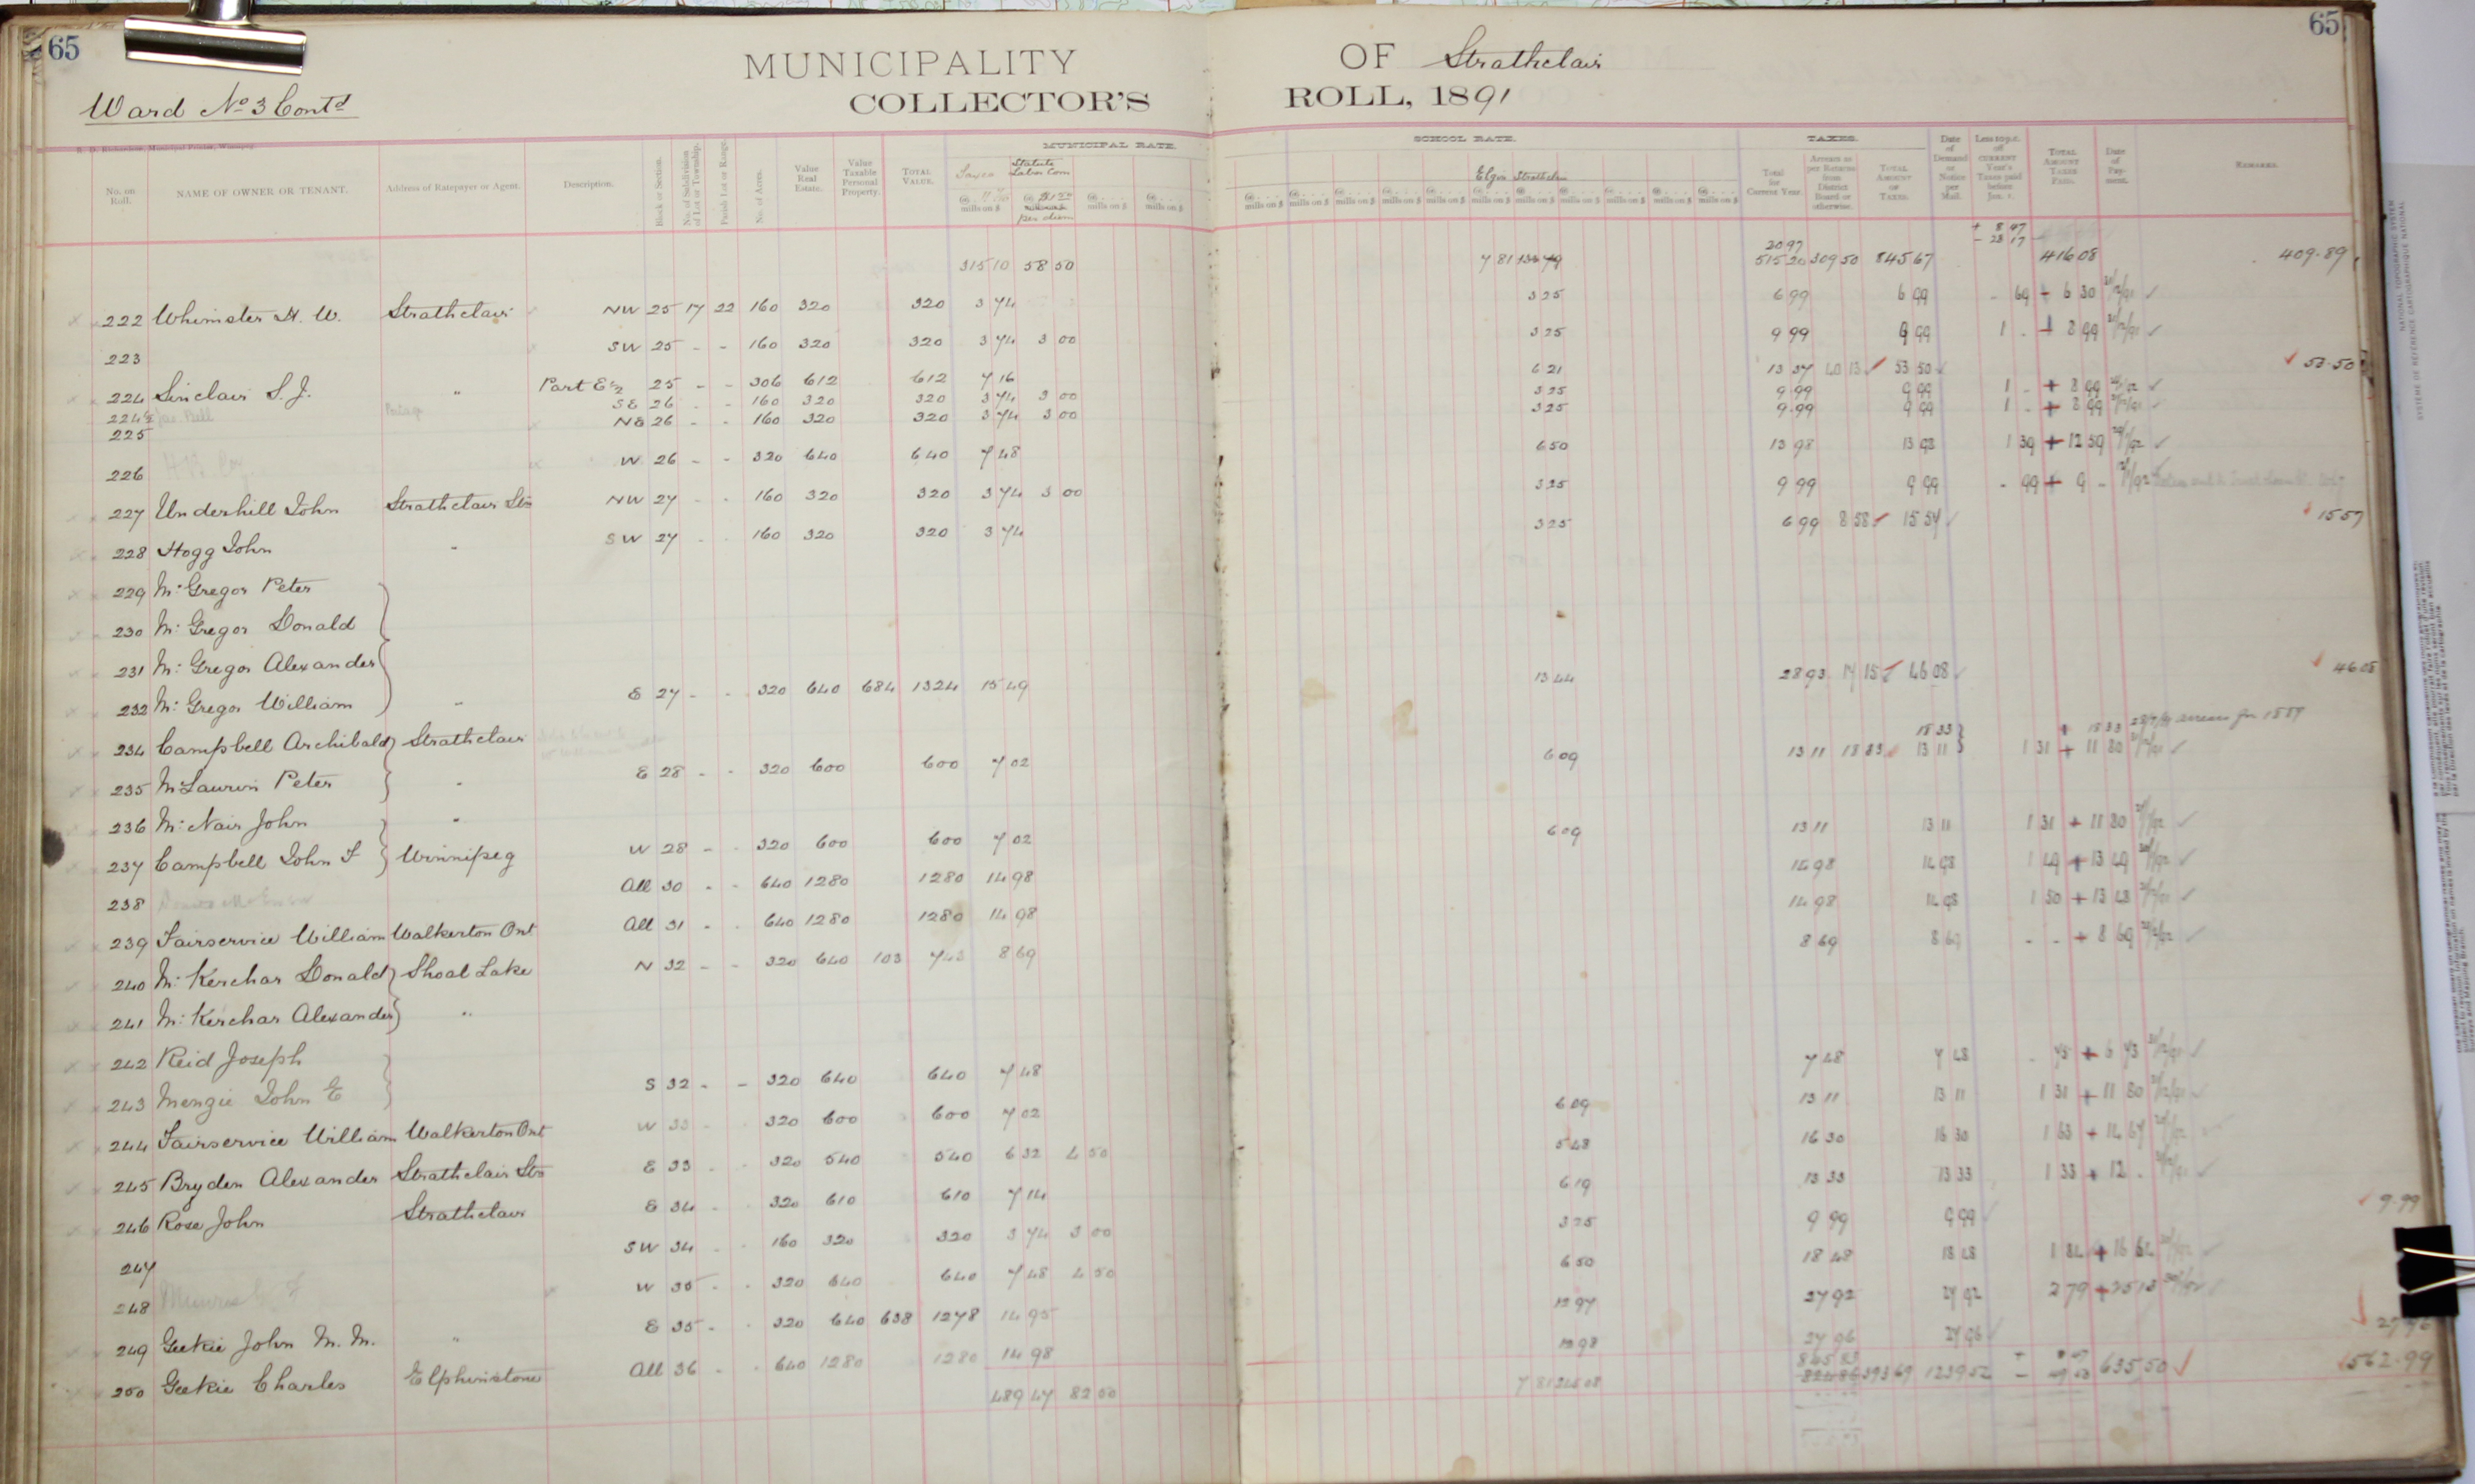 65
65
MUNICIPALITY OF Strathclair
COLLECTOR'S ROLL, 1891
Ward No 3 Contd
R. D. Richardson, Municipal Printer, Winnipeg.
MUNICIPAL RATE. SCHOOL RATE. TAXES.
No. on Roll. NAME OF OWNER OR TENANT. Address of Ratepayer or Agent. Description. Block or Section. No. of Subdivision of Lot or Township. Parish Lot or Range. No. of Acres. Value Real Estate. Value Taxable Personal Property. TOTAL VALUE. Statute Labor Com per diem mills on $ Elgin Strathclair Total for Current Year. Arrears as per Returns from District Board or otherwise. TOTAL AMOUNT OF TAXES. Date of Demand or Notice per Mail. Less 10 p.c. of CURRENT Year's Taxes paid before Jan. 1. TOTAL AMOUNT TAXES PAID. Date of Payment. REMARKS.
+ 8 97
- 28 17
30 97
315 10 58 50 7 81 515 20 309 50 845 67 416 08 409.89
222 Whimster H. W. Strathclair NW 25 17 22 160 320 320 3 74 3 25 6 99 6 99 - 69 + 6 30
223 SW 25 - - 160 320 320 3 74 3 00 3 25 9 99 9 99 1 - + 8 99
224 Sinclair S. J. " Part E½ 25 - - 306 612 612 7 16 6 21 13 37 40 13 53 50 53.50
224½ Jas Bell SE 26 - - 160 320 320 3 74 3 00 3 25 9 99 9 99 1 - + 8 99
225 NE 26 - - 160 320 320 3 74 3 00 3 25 9.99 9 99 1 - + 8 99
226 W 26 - - 320 640 640 7 48 6 50 13 98 13 98 1 39 + 12 59
227 Underhill John Strathclair Stn NW 27 - - 160 320 320 3 74 3 00 3 25 9 99 9 99 - 99 + 9 -
228 Hogg John " SW 27 - - 160 320 320 3 74 3 25 6 99 8 58 15 57 15 57
229 Mc Gregor Peter
230 Mc Gregor Donald
231 Mc Gregor Alexander
232 Mc Gregor William " E 27 - - 320 640 684 1324 15 49 13 44 28 93 17 15 46 08 46 08
234 Campbell Archibald Strathclair 18 33 + 18 33 arrears for 1889
235 McLaurin Peter " E 28 - - 320 600 600 7 02 6 09 13 11 18 33 13 11 1 31 + 11 80
236 Mc Nair John "
237 Campbell John F Winnipeg W 28 - - 320 600 600 7 02 6 09 13 11 13 11 1 31 + 11 80
238 All 30 - - 640 1280 1280 14 98 14 98 14 98 1 49 + 13 49
239 Fairservice William Walkerton Ont All 31 - - 640 1280 1280 14 98 14 98 14 98 1 50 + 13 48
240 Mc Kerchar Donald Shoal Lake N 32 - - 320 640 103 743 8 69 8 69 8 69 - - + 8 69
241 Mc Kerchar Alexander "
242 Reid Joseph
243 Menzie John E S 32 - - 320 640 640 7 48 7 48 7 48 - 75 + 6 73
244 Fairservice William Walkerton Ont W 33 - - 320 600 600 7 02 6 09 13 11 13 11 1 31 + 11 80
245 Bryden Alexander Strathclair Stn E 33 - - 320 540 540 6 32 4 50 5 48 16 30 16 30 1 63 + 14 67
246 Rose John Strathclair E 34 - - 320 610 610 7 14 6 19 13 33 13 33 1 33 + 12 -
247 SW 34 - - 160 320 320 3 74 3 00 3 25 9 99 9 99 9.99
248 W 35 - - 320 640 640 7 48 4 50 6 50 18 48 18 48 1 84 + 16 64
249 Geekie John M. M. " E 35 - - 320 640 638 1278 14 95 12 97 27 92 27 92 2 79 + 25 13
250 Geekie Charles Elphinstone All 36 - - 640 1280 1280 14 98 12 98 27 96 27 96 27.96
489 47 82 50 7 81 845 83 393 69 1239 52 635 50 562.99